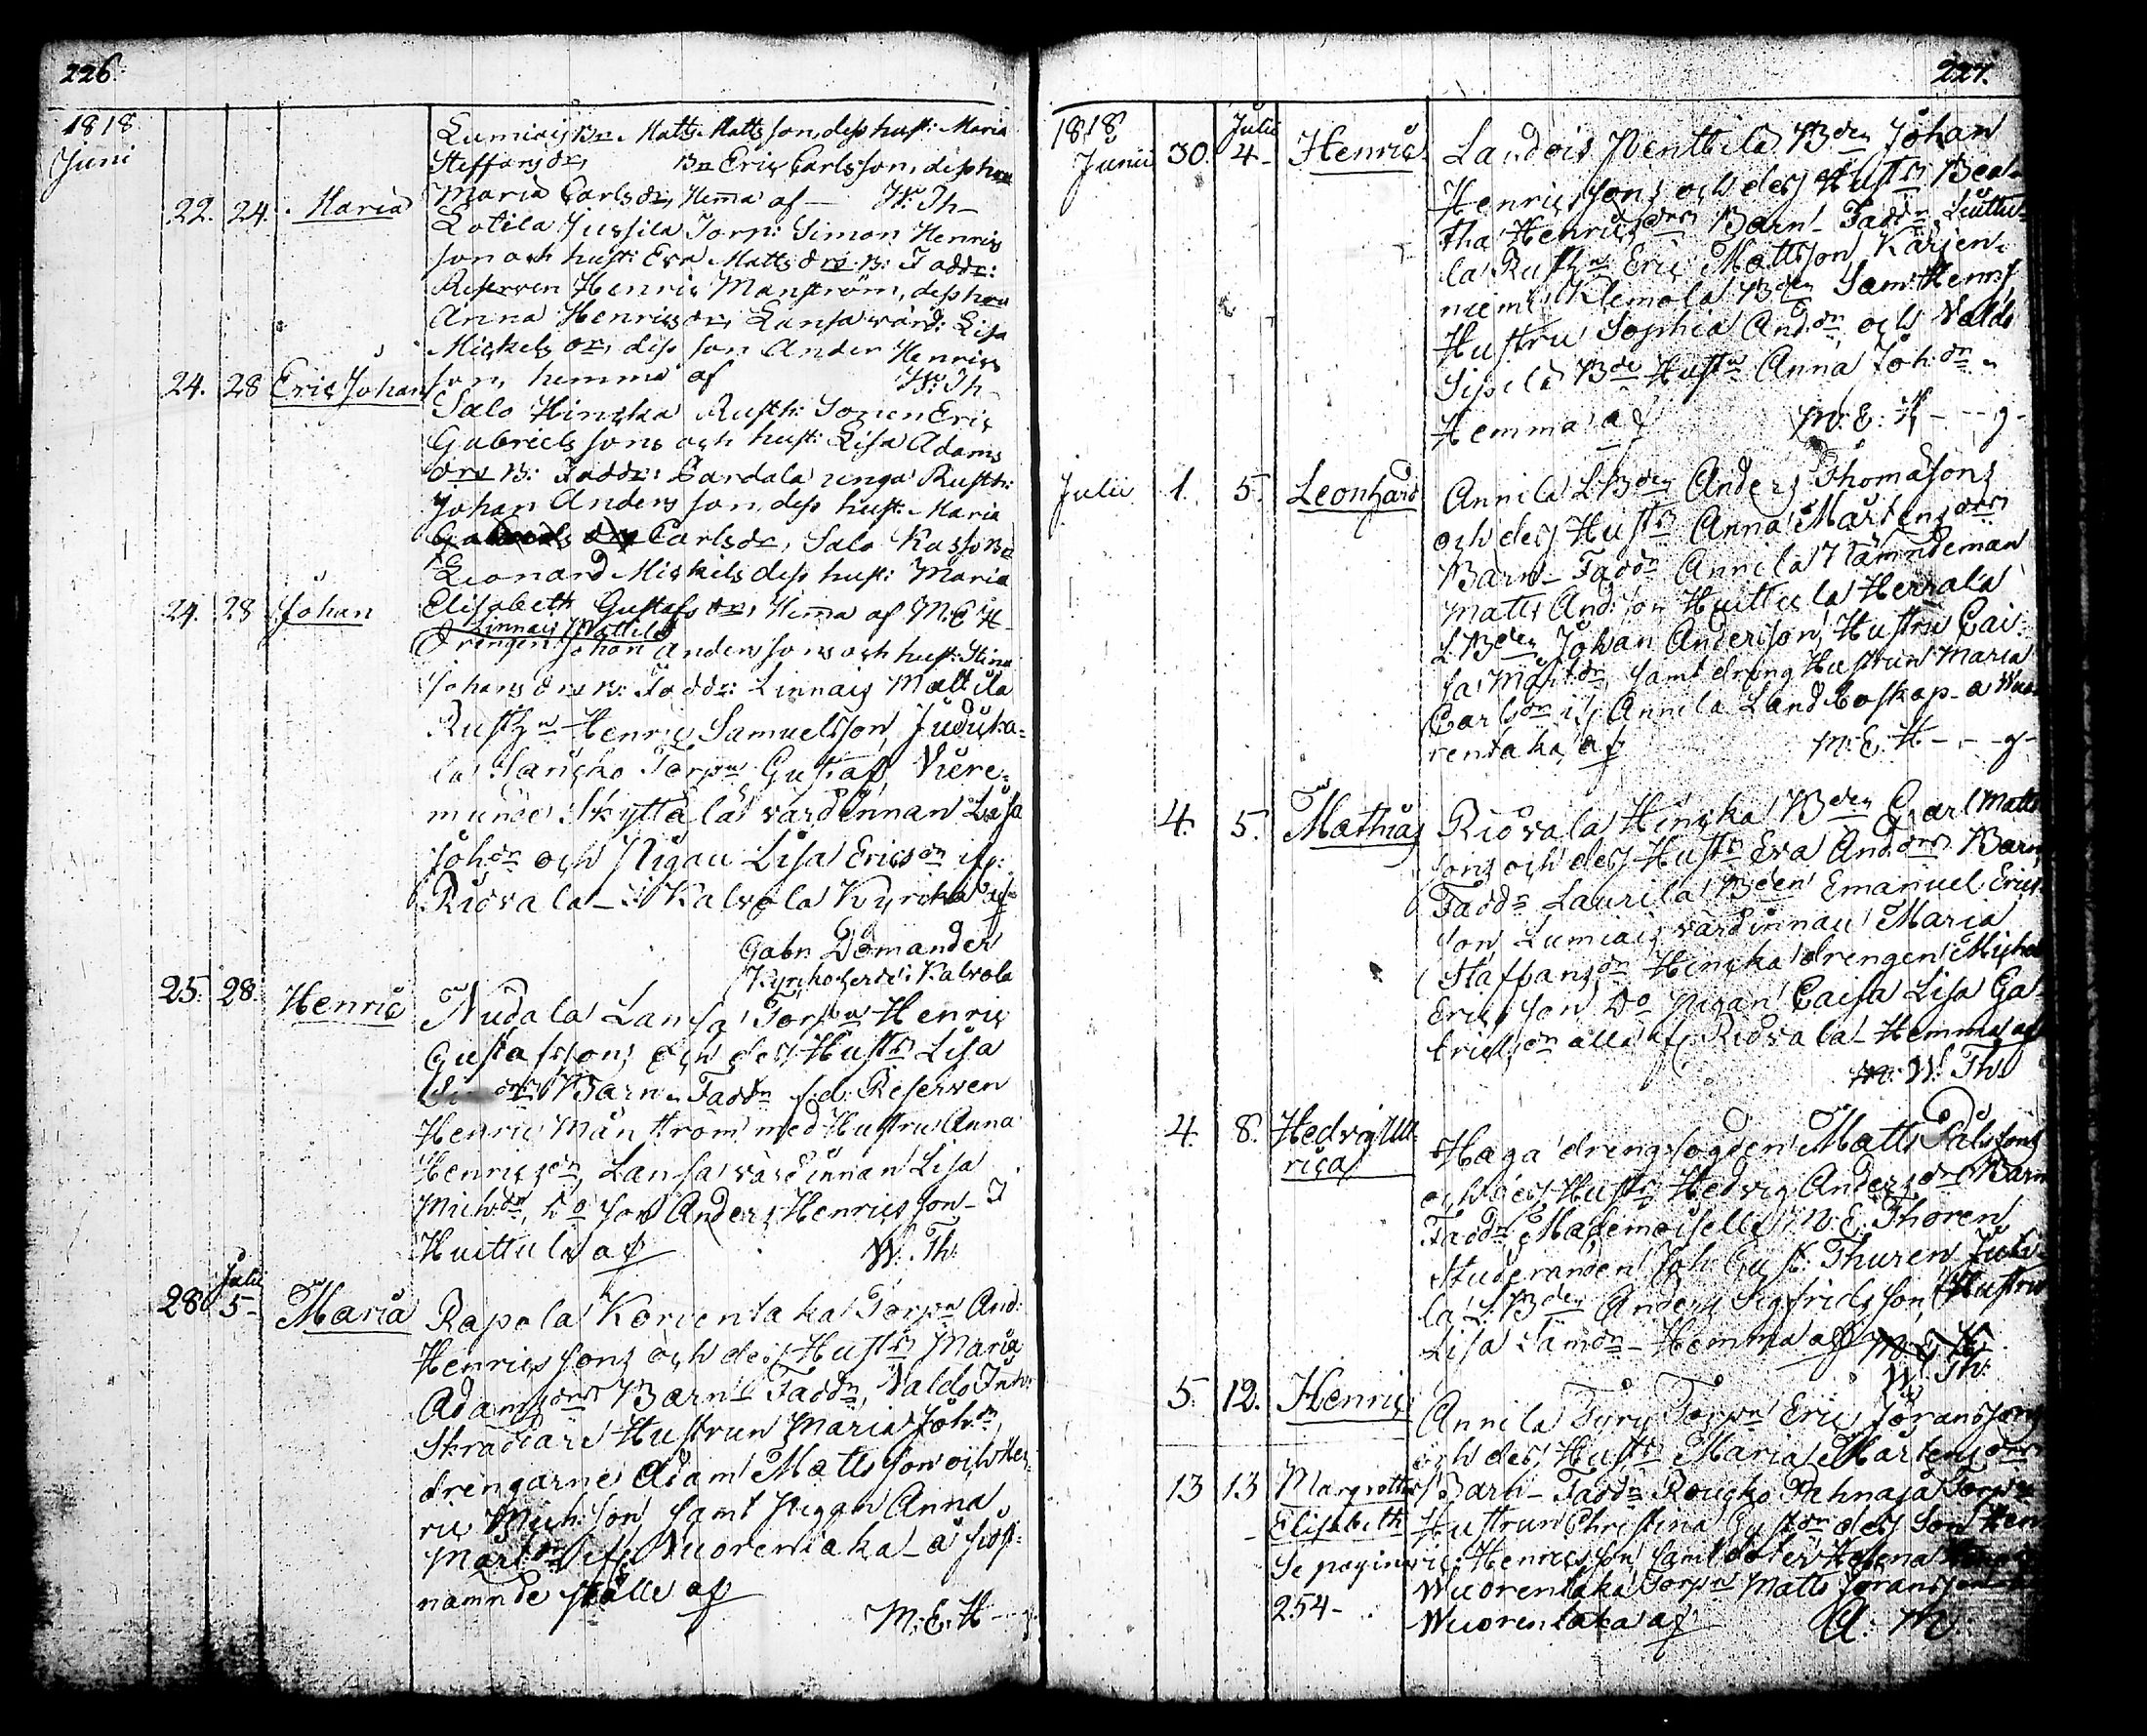 226.
1818
Juni
Lumiais Bn Matts Mattsson, dess hust: Maria
Steffansdr, Bn Eric Carlsson, dess hru
Maria Carlsdr, Hema af — W: Th—
22. 24. Maria
Lotila Jussila Torp: Simon Henrics
son och hust: Eva Mattsdrs B: Faddr:
Reserven Henric Manström, dess hru
Anna Henricsdr, Lansa värd: Lisa
Mickelsdr, dess son Ander Henrics
son, hemma af W: Th—
24. 28 Eric Johan
Salo Hincka Rusth: Sonen Eric
Gabriels sons och hust: Lisa Adams
drs B: Faddr: Pardala unga Rusth:
Johan Andersson, dess hust: Maria
Carlsdr, Salo Kasso Bn
Leonard Mickels dess hust: Maria
Elisabeth Gustafsdr, Hema af M: E H—
24. 28 Johan
Linnais Mattila
Drengen Johan Anderssons och hust: Stina
Johansdrs B: Faddr: Linnais Mattila
Rusthn Henric Samuelsson, Juduka=
la Jancko Torpn Gustaf, Niere=
munde Skyttälä värdinnan Lisa
Johdr och Pigan Lisa Ericsdr ifr:
Ridvala — i Kalvola Kyrcka af
Gabr Dömander
Kyrckoherde i Kalvola
25. 28. Henric
Nudala Lansa Torpn Henric
Gustafssons och des Hustrs Lisa
Barn. Faddr f:d: Reserven
Henric Mänström med Hustru Anna
Henricsdr, Lansa värdinnan Lisa
Michdr, Do son Anders Henrics son — I
Huittula af W. Th.
28 Julii 5— Maria
Rapola Korventaka Torpn And:
Henrics sons och des Hustrs Maria
Adamsdrs Barn. Faddr, Naldo Inh:
Skräddare Hustrun Maria Johdr,
drengarne Adam Matts son och Hen=
ric Mich: son samt Pigan Anna
Martdr if: Wuorentaka — å sist=
nämnde ställe af
M. E. H—
227.
1818.
Junii 30. Julii 4— Henric
Landois Penttilä Bden Johan
Henrics sons och des Hustrs Bea=
tha Henricsdrs Barn — Faddr Luttu=
la Rusthn Eric Mattsson, Kärjen=
niemi Klemola Bden Sam: Henr:s
Hustru Sophia Anddr och Naldo
Sipilä Bde Hustr Anna Johdr —
Hemma af M: E: H — g—
Julii 1. 5. Leonhard
Annila LBden Anders Thomasons
och des Hustrs Anna Mårtensdrs
Barn — Faddr Annila Nämndeman
Matts And:son Huittula Herrala
LBden Johan Andersson, Hustru Cai=
sa Matsdr, samt dreng Hustrun Maria
Carlsdr if Annila Landboskap — å Wuo=
rentaka af M: E. H — g—
4. 5. Mathias
Ridvala Hincka Bden Carl Matts
sons och des Hustrs Eva Anddrs Barn
Faddr Laurila Bden Emanuel Erics
son, Lumiais värdinnan Maria
Staffansdr Hincka drengen Michel
Erics son Do Pigan Caisa Lisa Ga=
brielsdr alla if Ridvala — Hemma af
W. Th.
4. 8. Hedvig Ull
rica
Haga drengfogden Matts Pålssons
och des Hustrs Hedvig Andersdrs Barn
Faddr Mademoiselle M: E: Thoren
Studeranden Joh: Gust: Thuren, Jute
la LBden Anders Sigfridsson, Hustru
Lisa Samdr — Hemma af
W. Th.
5. 12. Henric
Annila Turu Torpn Eric Jöranssons
och des Hustrs Maria Mårtensdrs
Barn — Faddr Roucko Pahnaja Torpn
Hustrun Christina Gustdr des Son Hen
ric Henricsson samt doter Helena
Wuorentaka Torpn Matts Jöransson
Wuorentaka af A: M.
13 13 Margretta
Elisabeth
Se pagina
254—